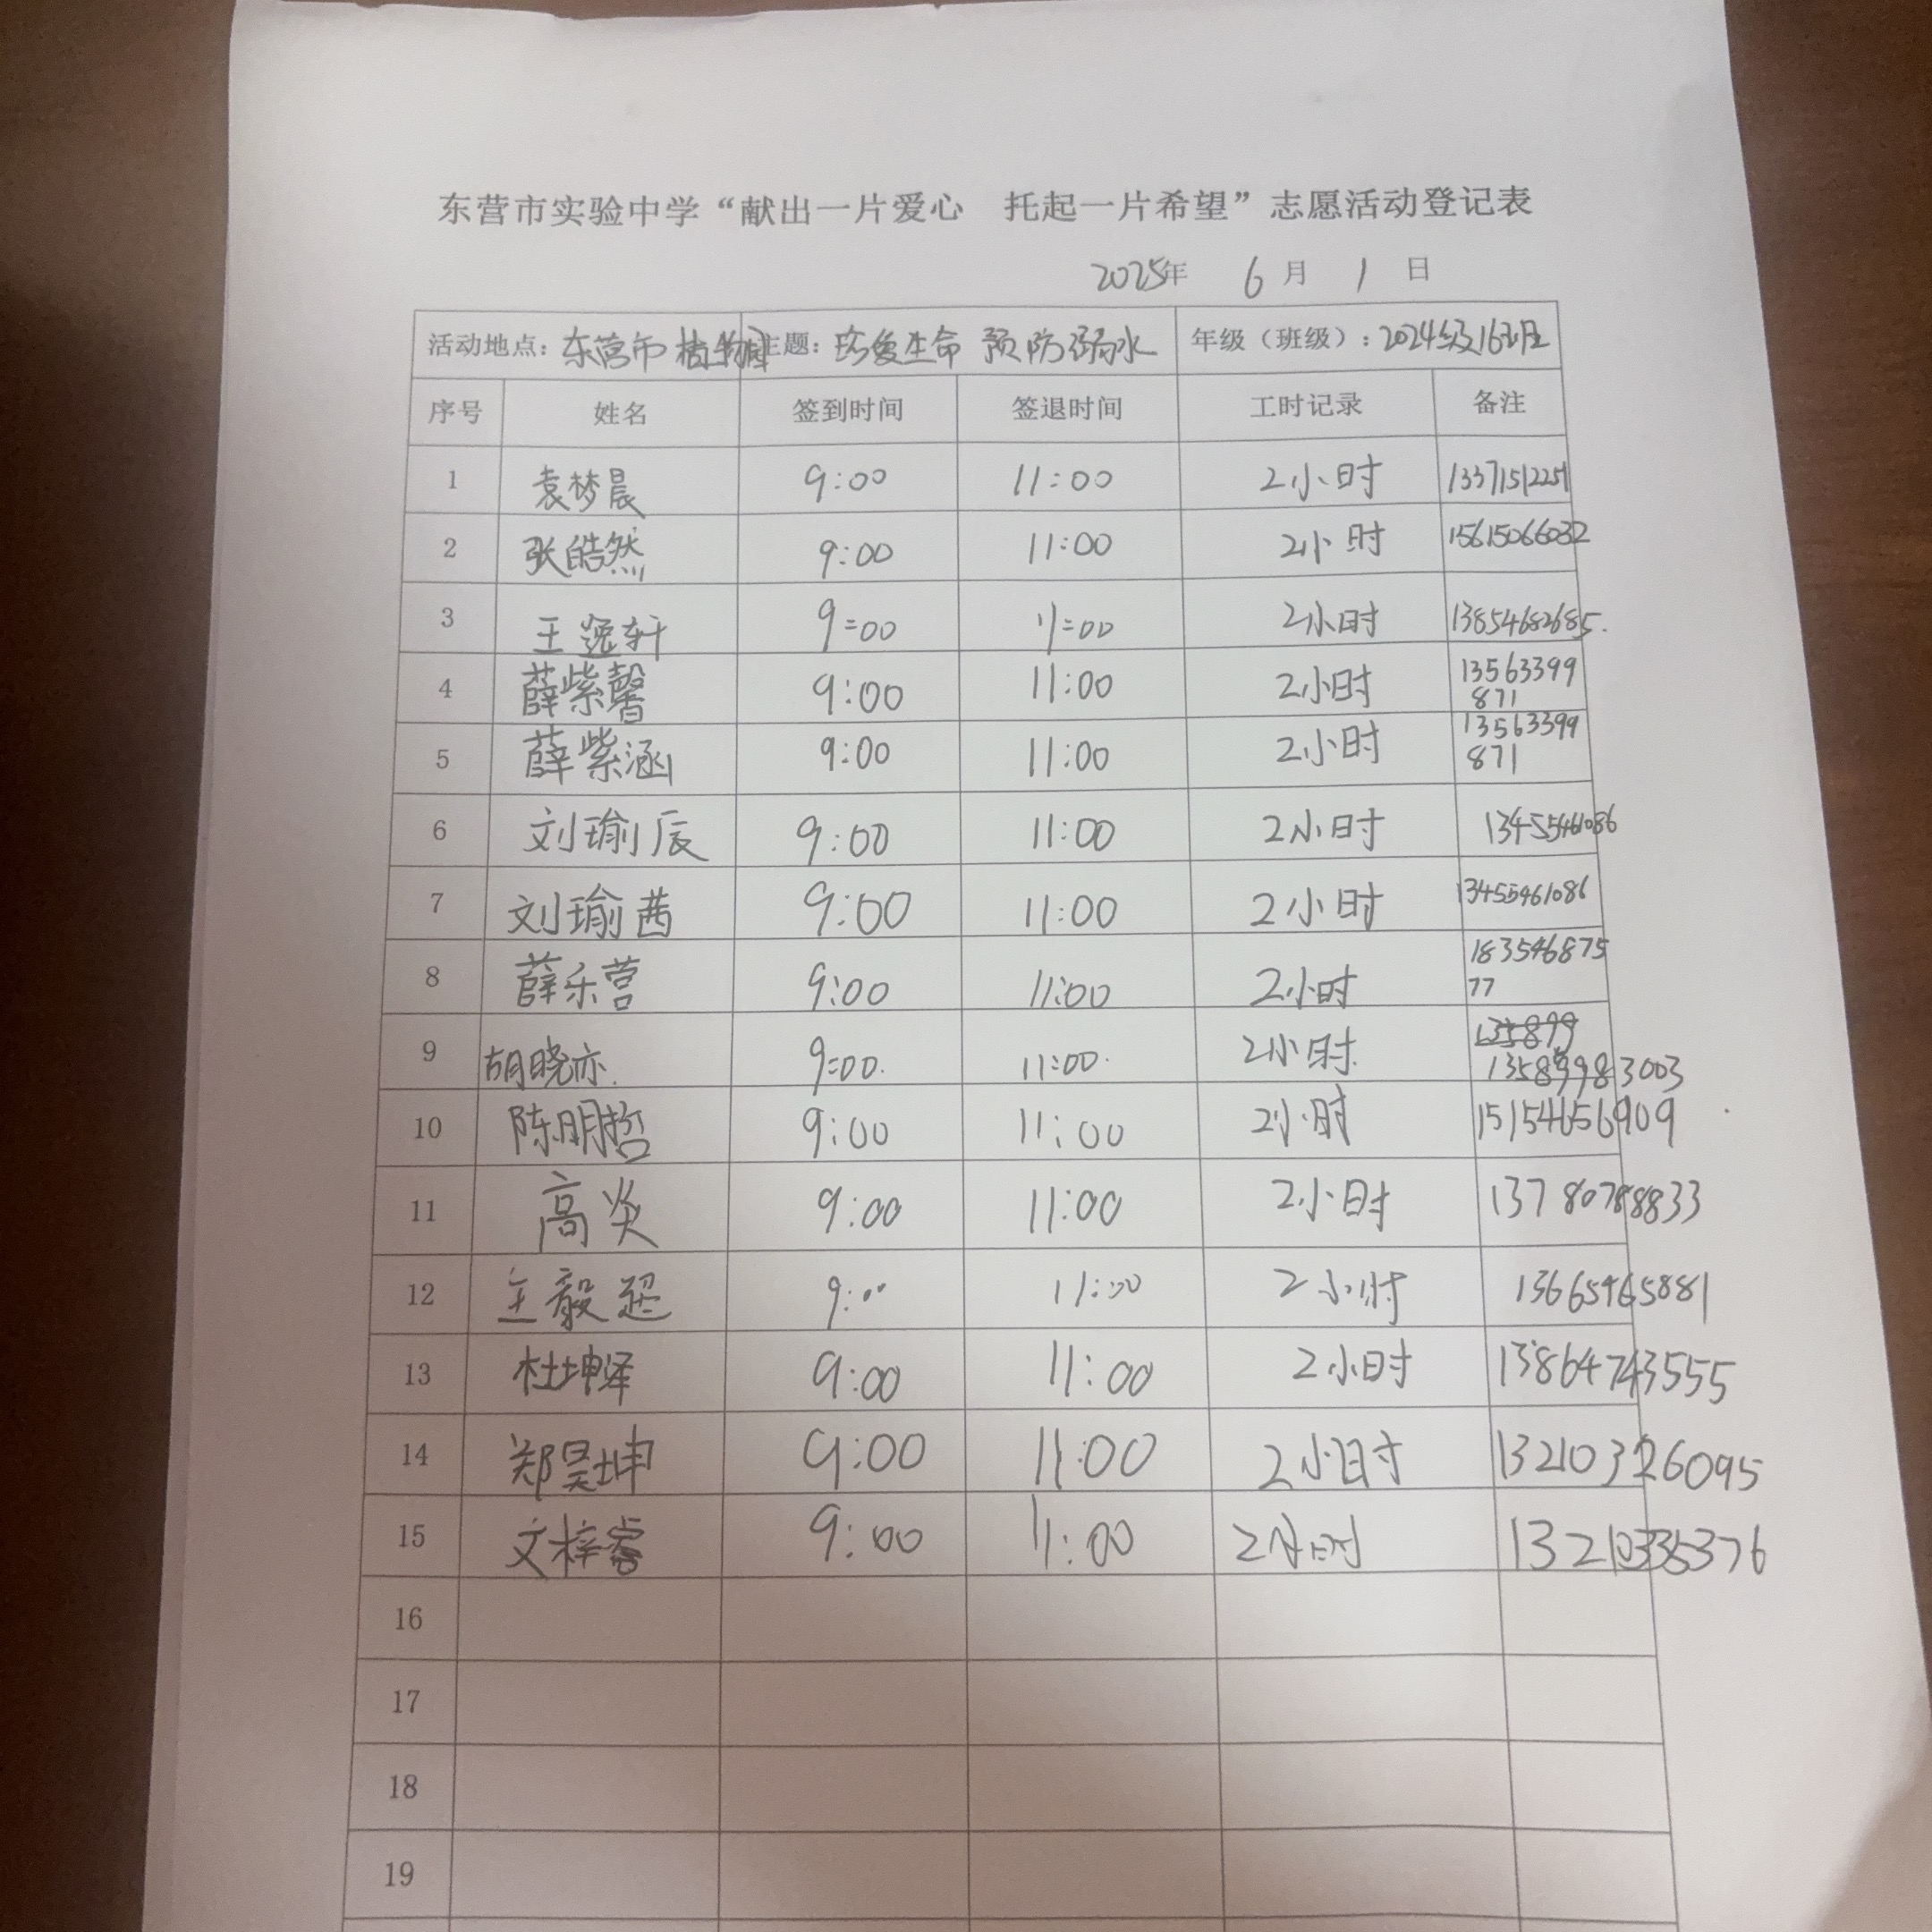 东营市实验中学“献出一片爱心 托起一片希望”志愿活动登记表
2025年 6月 1日
活动地点：东营市植物园 主题：珍爱生命 预防溺水 年级（班级）：2024级16班
序号 姓名 签到时间 签退时间 工时记录 备注
1 袁梦晨 9:00 11:00 2小时 13371512251
2 张皓然 9:00 11:00 2小时 15615066032
3 王逸轩 9:00 11:00 2小时 13854682685.
4 薛紫馨 9:00 11:00 2小时 13563399
871
5 薛紫涵 9:00 11:00 2小时 13563399
871
6 刘瑜辰 9:00 11:00 2小时 13455461086
7 刘瑜茜 9:00 11:00 2小时 13455461086
8 薛乐营 9:00 11:00 2小时 183546875
77
9 胡晓亦. 9:00. 11:00. 2小时. 135899
13589983003
10 陈明哲 9:00 11:00 2小时 15154656909
11 高炎 9:00 11:00 2小时 13780788833
12 王毅超 9:00 11:00 2小时 13665465881
13 杜坤泽 9:00 11:00 2小时 13864743555
14 郑昊坤 9:00 11:00 2小时 13210326095
15 文梓睿 9:00 11:00 2小时
16
17
18
19